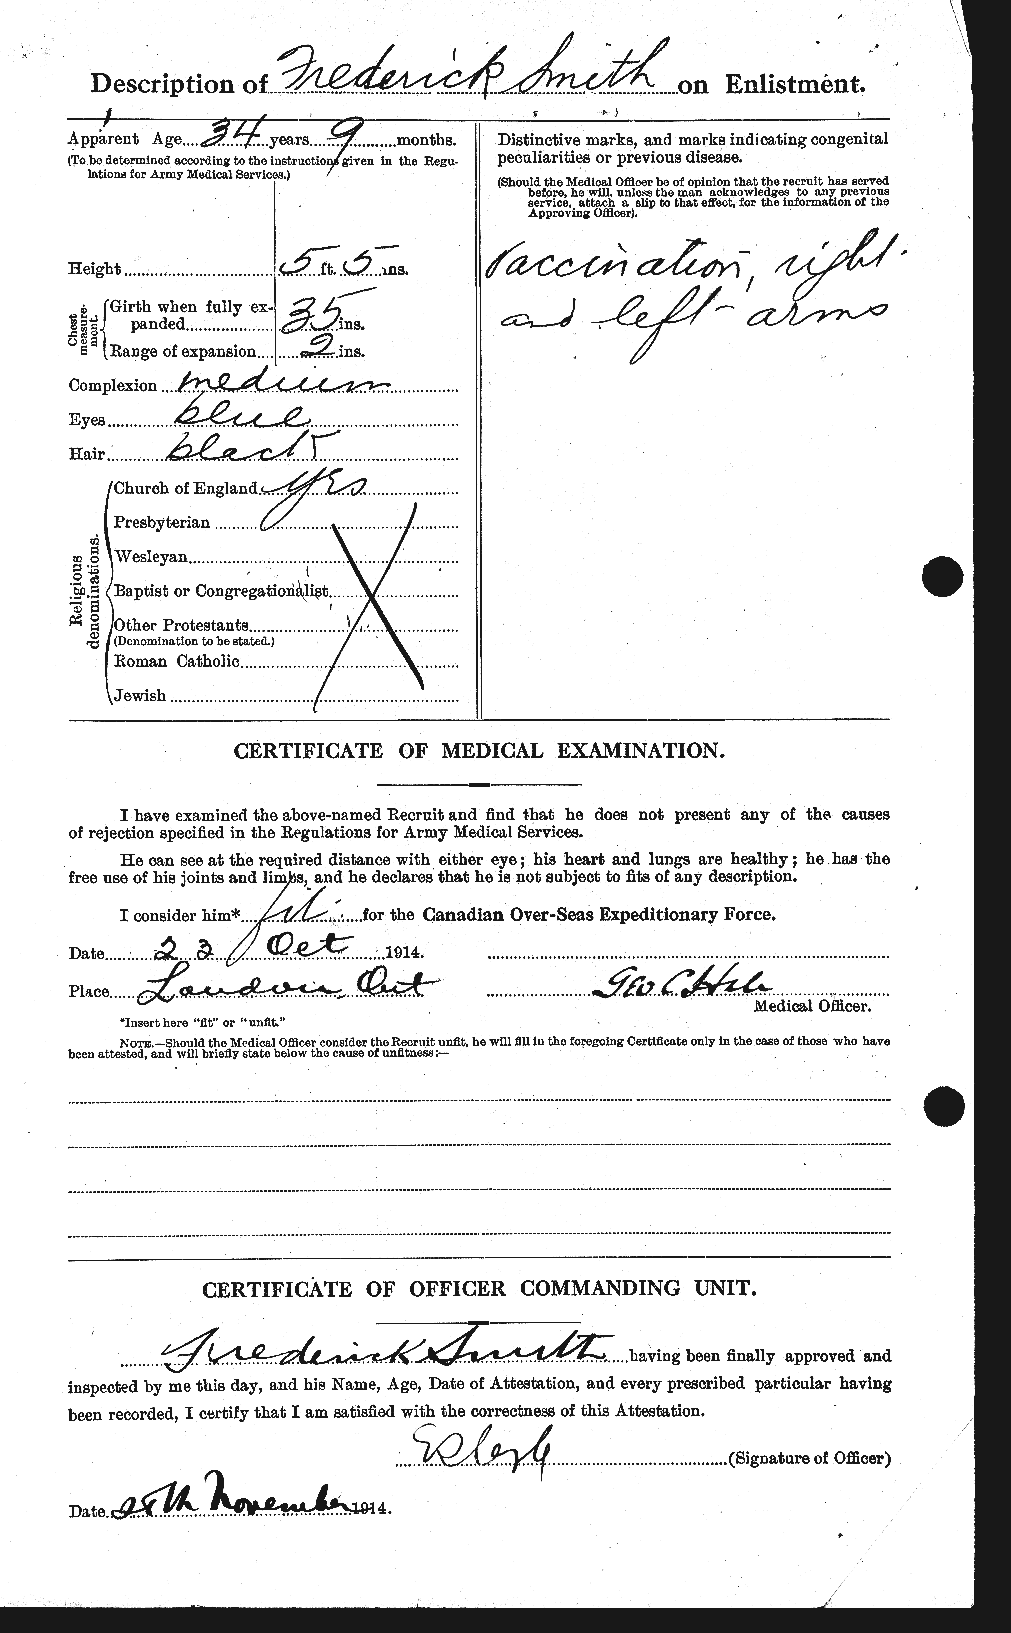 Description of Frederick Smith on Enlistment.
Apparent Age....34 years 9 months.
(To be determined according to the instructions given in the Regu-
lations for Army Medical Services.)
Height 5 ft. 5 ins.
Chest measure-
ment.
Girth when fully ex-
panded 35 ins.
Range of expansion 2 ins.
Complexion medium
Eyes blue
Hair black
Religious
denominations.
Church of England yes
Presbyterian
Wesleyan
Baptist or Congregationalist
Other Protestants
(Denomination to be stated.)
Roman Catholic
Jewish
Distinctive marks, and marks indicating congenital
peculiarities or previous disease.
(Should the Medical Officer be of opinion that the recruit has served
before, he will, unless the man acknowledges to any previous
service, attach a slip to that effect, for the information of the
Approving Officer).
Vaccination, right
and left arms
CERTIFICATE OF MEDICAL EXAMINATION.
I have examined the above-named Recruit and find that he does not present any of the causes
of rejection specified in the Regulations for Army Medical Services.
He can see at the required distance with either eye; his heart and lungs are healthy; he has the
free use of his joints and limbs, and he declares that he is not subject to fits of any description.
I consider him* fit for the Canadian Over-Seas Expeditionary Force.
Date 23 Oct 1914.
Place London, Ont
Geo C
Medical Officer.
*Insert here "fit" or "unfit."
NOTE.—Should the Medical Officer consider the Recruit unfit, he will fill in the foregoing Certificate only in the case of those who have
been attested, and will briefly state below the cause of unfitness:—
CERTIFICATE OF OFFICER COMMANDING UNIT.
Frederick Smith having been finally approved and
inspected by me this day, and his Name, Age, Date of Attestation, and every prescribed particular having
been recorded, I certify that I am satisfied with the correctness of this Attestation.
(Signature of Officer)
Date 28th November 1914.